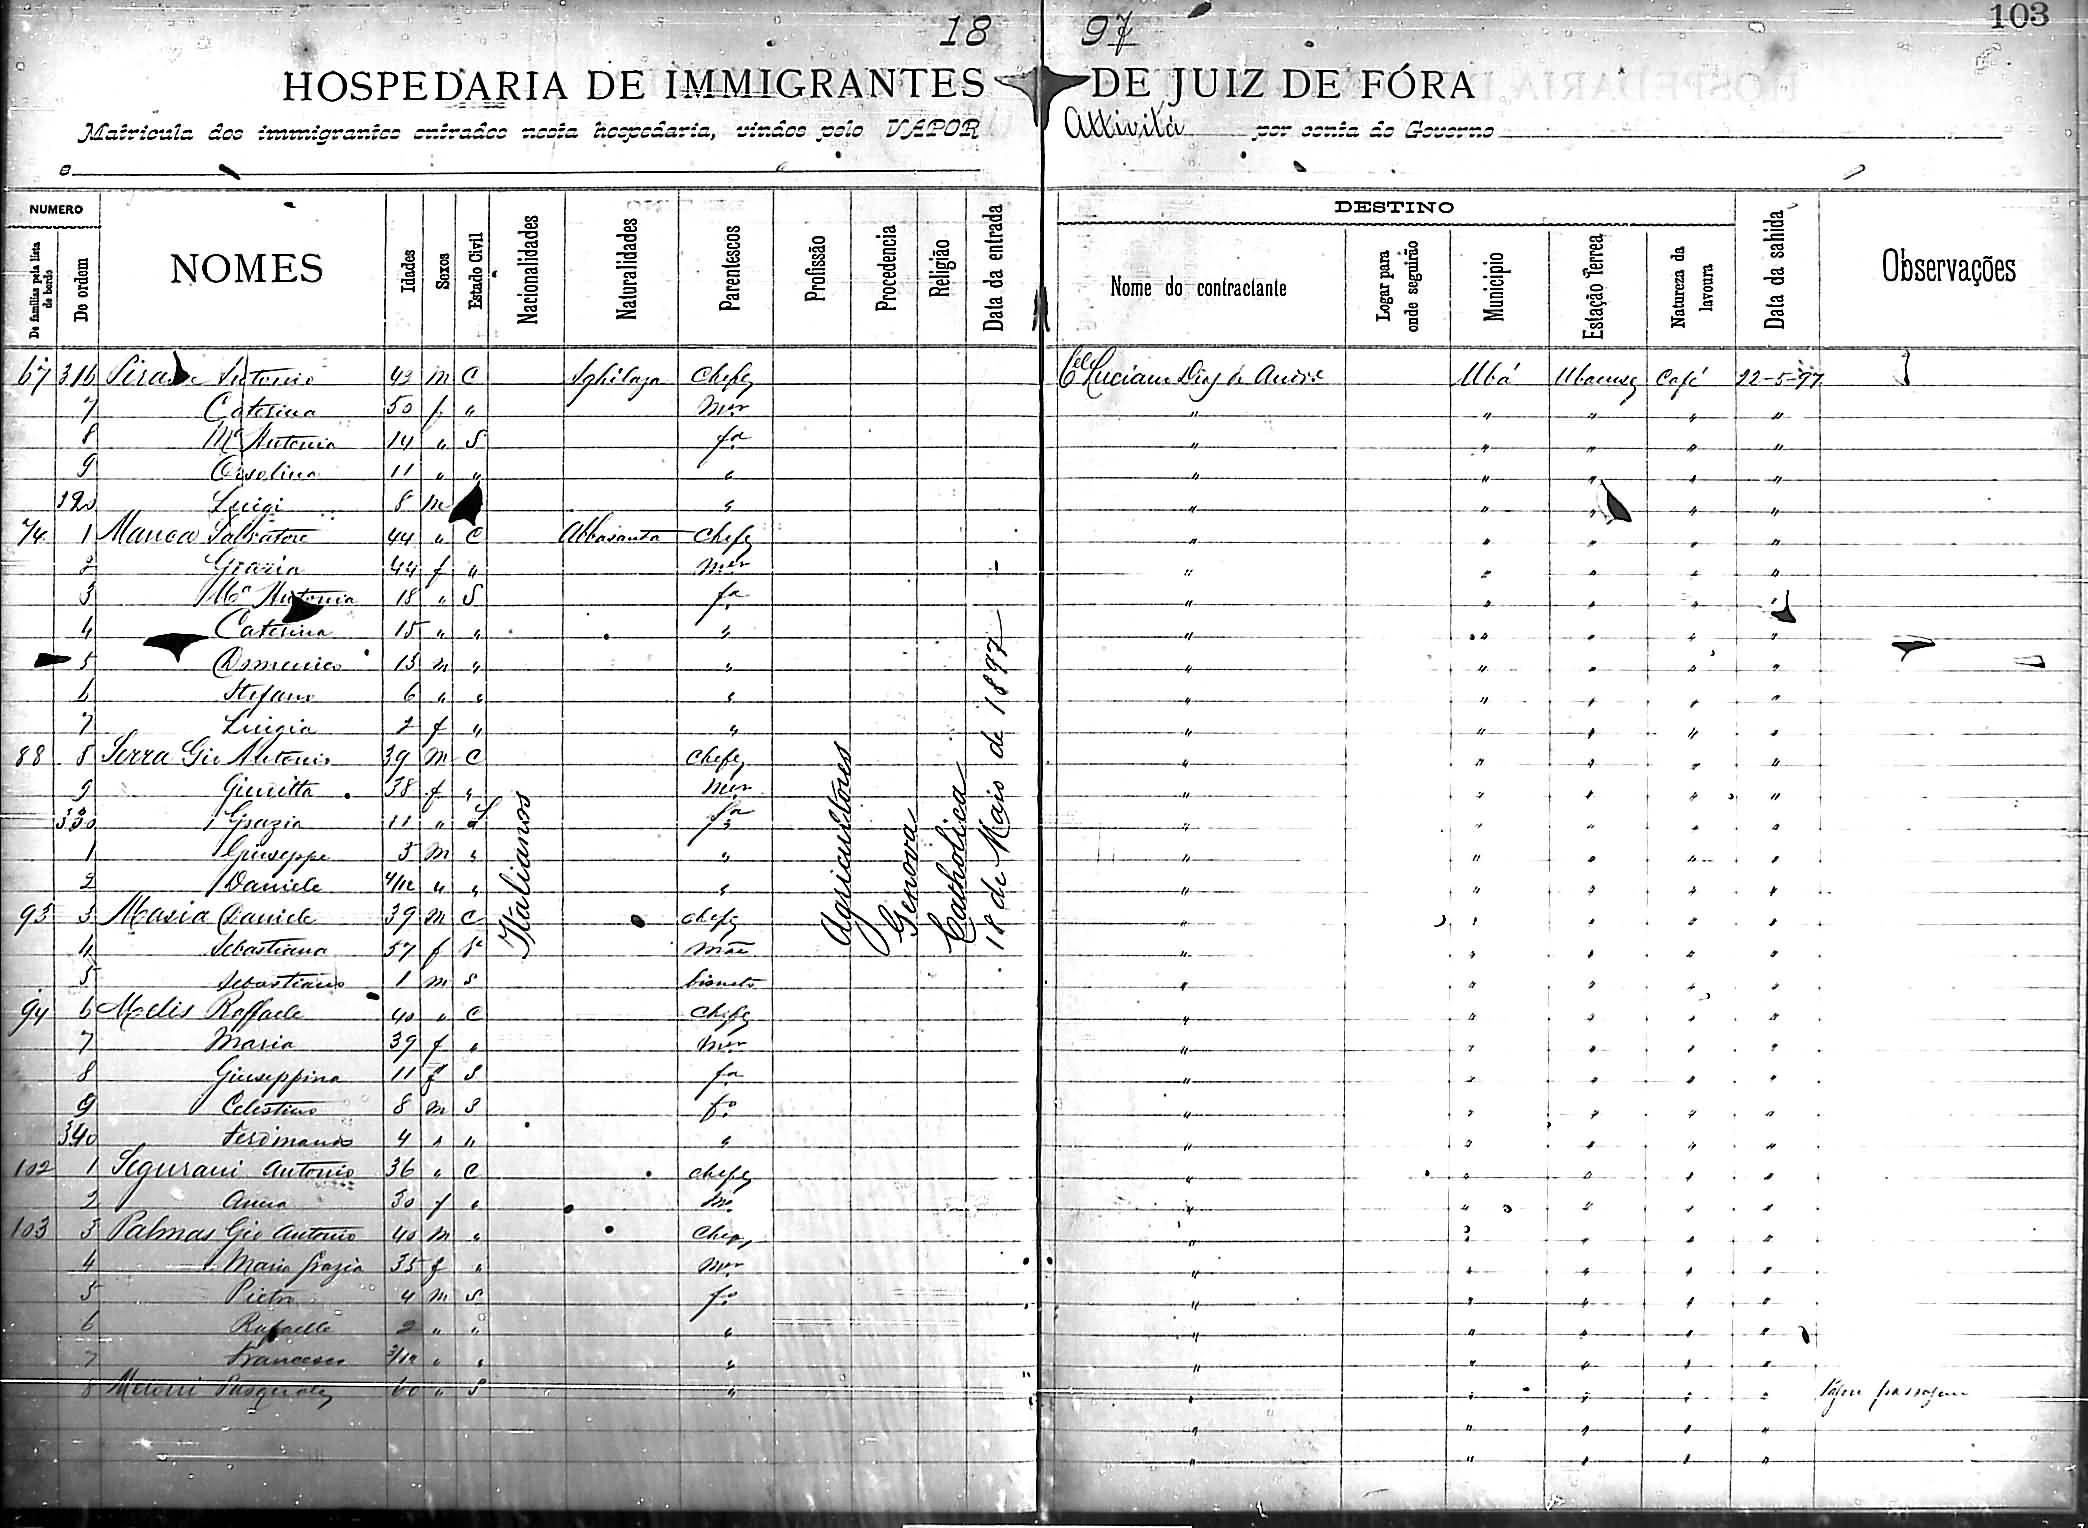 103
18 97
HOSPEDARIA DE IMMIGRANTES DE JUIZ DE FÓRA
Matricula dos immigrantes entrados nesta hospedaria, vindos pelo VAPOR Attività por conta do Governo
e
NUMERO DESTINO
De familias pela lista de bordo De ordem NOMES Idades Sexos Estado Civil Nacionalidades Naturalidades Parentescos Profissão Procedencia Religião Data da entrada Nome do contractante Logar para onde seguirão Municipio Estação Ferrea Natureza da lavoura Data da sahida Observações
67 316 Antonio 43 m C Sghilaza Chefe Cel Luciano Dias de Ubá Ubaense Café 22-5-97
7 Caterina 50 f " mer " " " " "
8 Ma Antonia 14 " S fa " " " " "
9 Orsolina 11 " " " " " " " "
320 Luigi 8 m " " " " " "
74 1 Manca Salvatore 44 " C Abbasanta Chefe " " " " "
2 Grazia 44 f " mer " " " " "
3 Ma Antonia 18 " S fa " " " " "
4 Caterina 15 " " " " " " " "
5 Domenico 13 m " " " " " " "
6 Stefano 6 " " " " " " " "
7 Luigia 2 f " " " " " " "
88 8 Serra Gio Antonio 39 m C Chefe " " " " "
9 Giuritta 38 f " mer " " " " "
330 Grazia 11 " S fa " " " " "
1 Giuseppe 3 m " " " " " " "
2 Daniele 4/12 " " " " " " " "
93 3 Masia Daniele 39 m C chefe " " " " "
4 Sebastiana 57 f mãe " " " " "
5 Sebastiano 1 m S bisneto " " " " "
94 6 Melis Raffaele 40 " C Chefe " " " " "
7 Maria 39 f " mer " " " " "
8 Giuseppina 11 f S fa " " " " "
9 Celestino 8 m S fo " " " " "
340 Ferdinando 4 " " " " " " " "
102 1 Segurani Antonio 36 " C chefe " " " " "
2 Anna 30 f " mer " " " " "
103 3 Palmas Gio Antonio 40 m " Chefe " " " " "
4 Maria Grazia 35 f " mer " " " " "
5 Pietro 4 m S fo " " " " "
6 Rafaelle 2 " " " " " " " "
7 Francesco 3/12 " " " " " " " "
8 Pasquale 60 " S " " " " " " passagem
" " " " "
" " " " "
Italianos
Agricultores
Genova
Catholica
18 de Maio de 1897